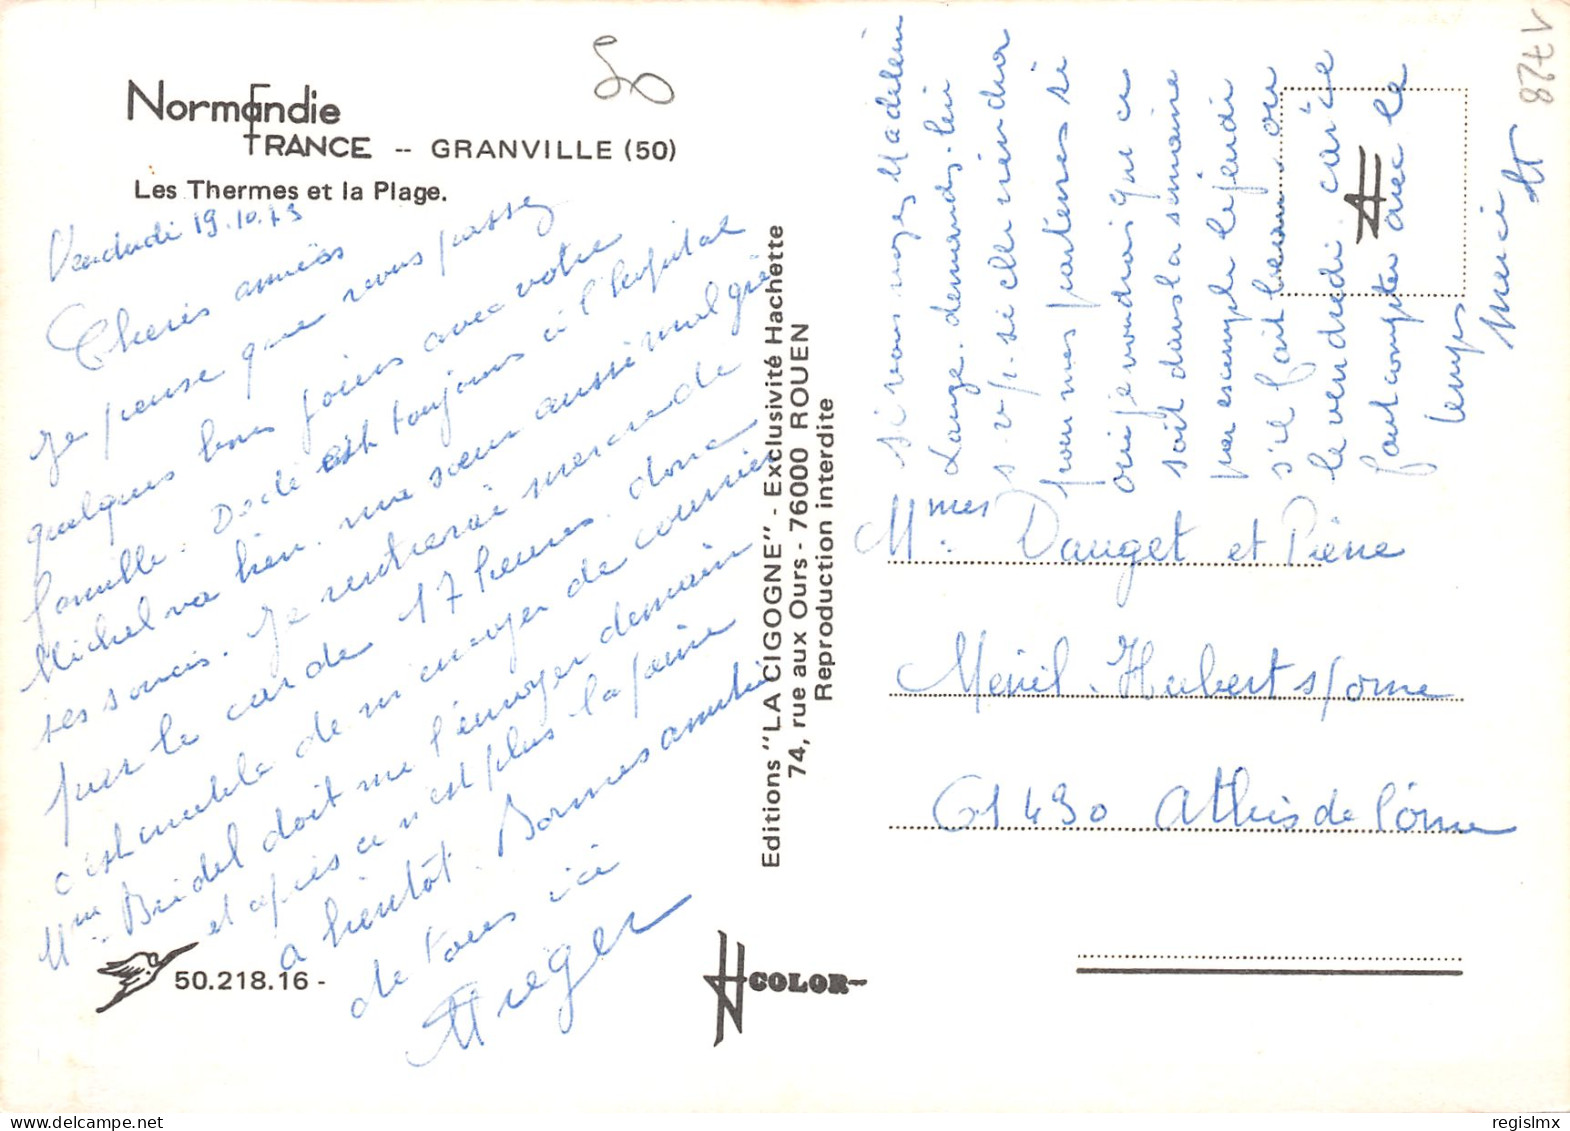 50
Normandie
FRANCE -- GRANVILLE (50)
Les Thermes et la Plage.
Vendredi 19.10.73
Cheries amies
Je pense que vous passez
quelques bons jours avec votre
famille. Dédé est toujours à l'hopital
Michel va bien. ma sœur aussi malgré
ses soucis. Je rentrerai mercredi
par le car de 17 heures. donc
c'est inutile de m'envoyer de courrier
Mme Bridel doit me l'envoyer demain
et après ce n'est plus la peine
a bientôt. Bonnes amitiés
de tous ici
50.218.16 -
Editions "LA CIGOGNE" - Exclusivité Hachette
74, rue aux Ours - 76000 ROUEN
Reproduction interdite
COLOR
si vous voyez Madeleine
Lange. demandez-lui
s.v.p. si elle viendra
pour mes parterres si
oui je voudrais que ce
soit dans la semaine
par exemple le jeudi
s'il fait beau. ou
le vendredi car ce
faut compter avec le
temps
merci
1728
Mmes Dauget et Pierre
Ménil-Hubert s/orne
61430 Athis de l'Orne
regislmx